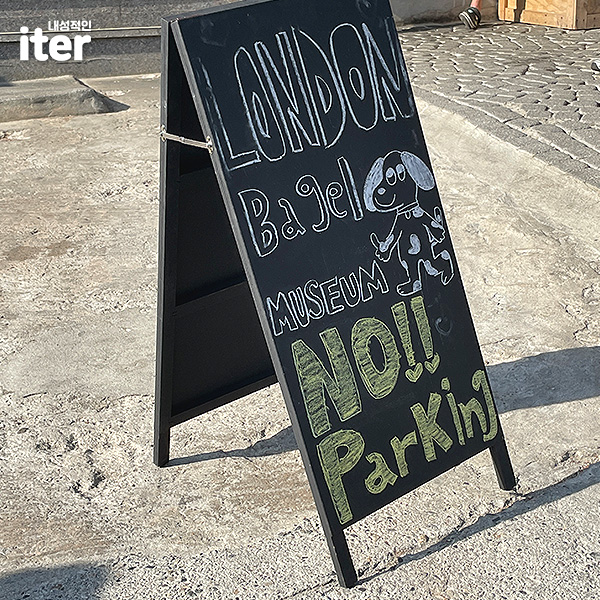 내성적인
iter
LONDON
Bagel
MUSEUM
NO!!
Parking